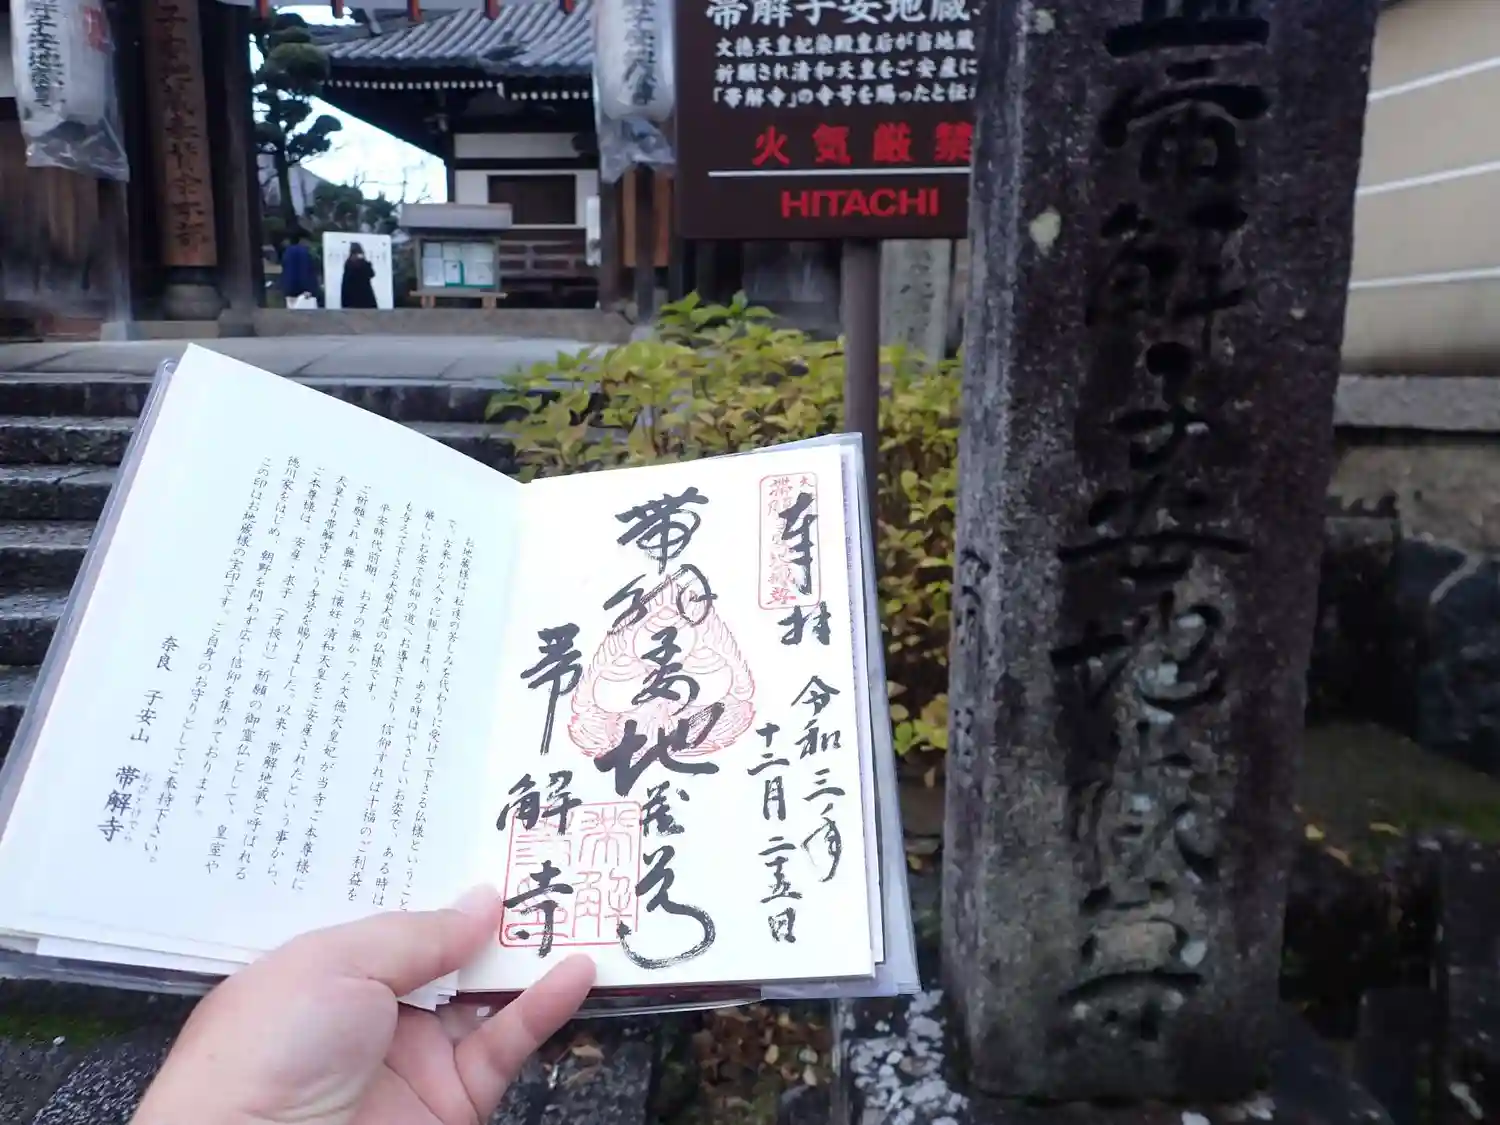 帯解子安地蔵
文徳天皇妃染殿皇后が当地蔵
祈願され清和天皇をご安産に
「帯解寺」の寺号を賜ったと伝
火気厳禁
HITACHI
子安地蔵
帯解子安地蔵尊
お地蔵様は、私達の苦しみを代わりに受けて下さる仏様ということ
で、古来から人々に親しまれ、ある時はやさしいお姿で、ある時は
厳しいお姿で信仰の道へお導き下さり、信仰すれば十福のご利益を
も与えて下さる大慈大悲の仏様です。
平安時代前期、お子の無かった文徳天皇妃が当寺ご本尊様に
ご祈願され、無事にご懐妊、清和天皇をご安産されたという事から、
天皇より帯解寺という寺号を賜りました。以来、帯解地蔵と呼ばれる
ご本尊様は、安産・求子(子授け)祈願の御霊仏として、皇室や
徳川家をはじめ、朝野を問わず広く信仰を集めております。
この印はお地蔵様の宝印です。ご自身のお守りとしてご奉持下さい。
奈良 子安山 帯解寺
おびとけでら
奉拝
令和三年
十二月二十五日
帯解子安地蔵尊
帯解寺